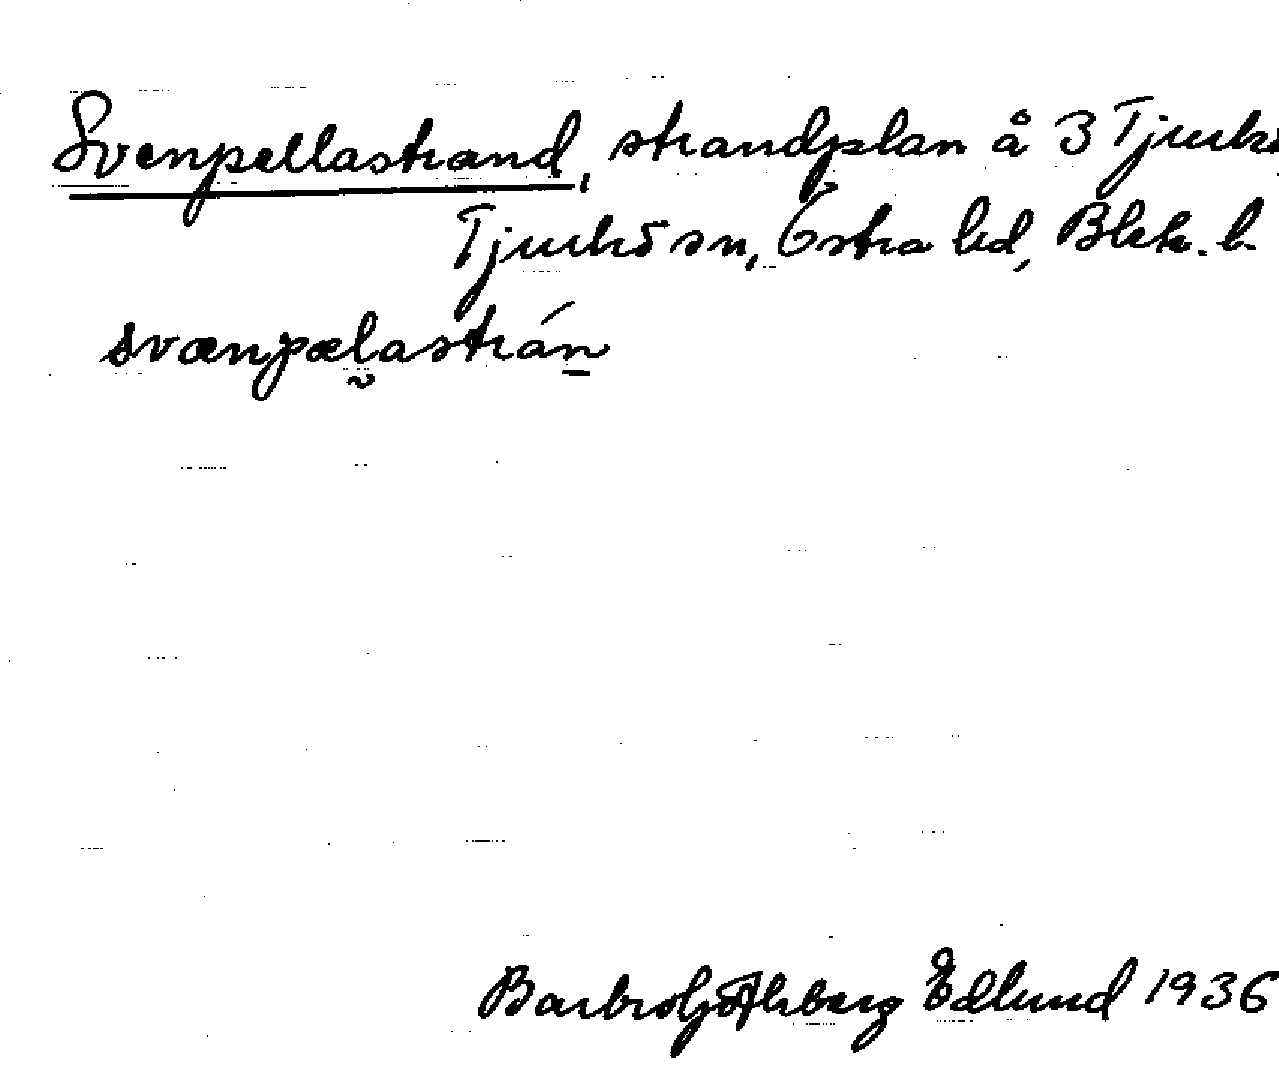 Svenpellastrand, strandplan å 3 Tjurk
Tjurkö sn, Östra hd, Blek. l.
svænpælastrán
Barbro Edlund 1936